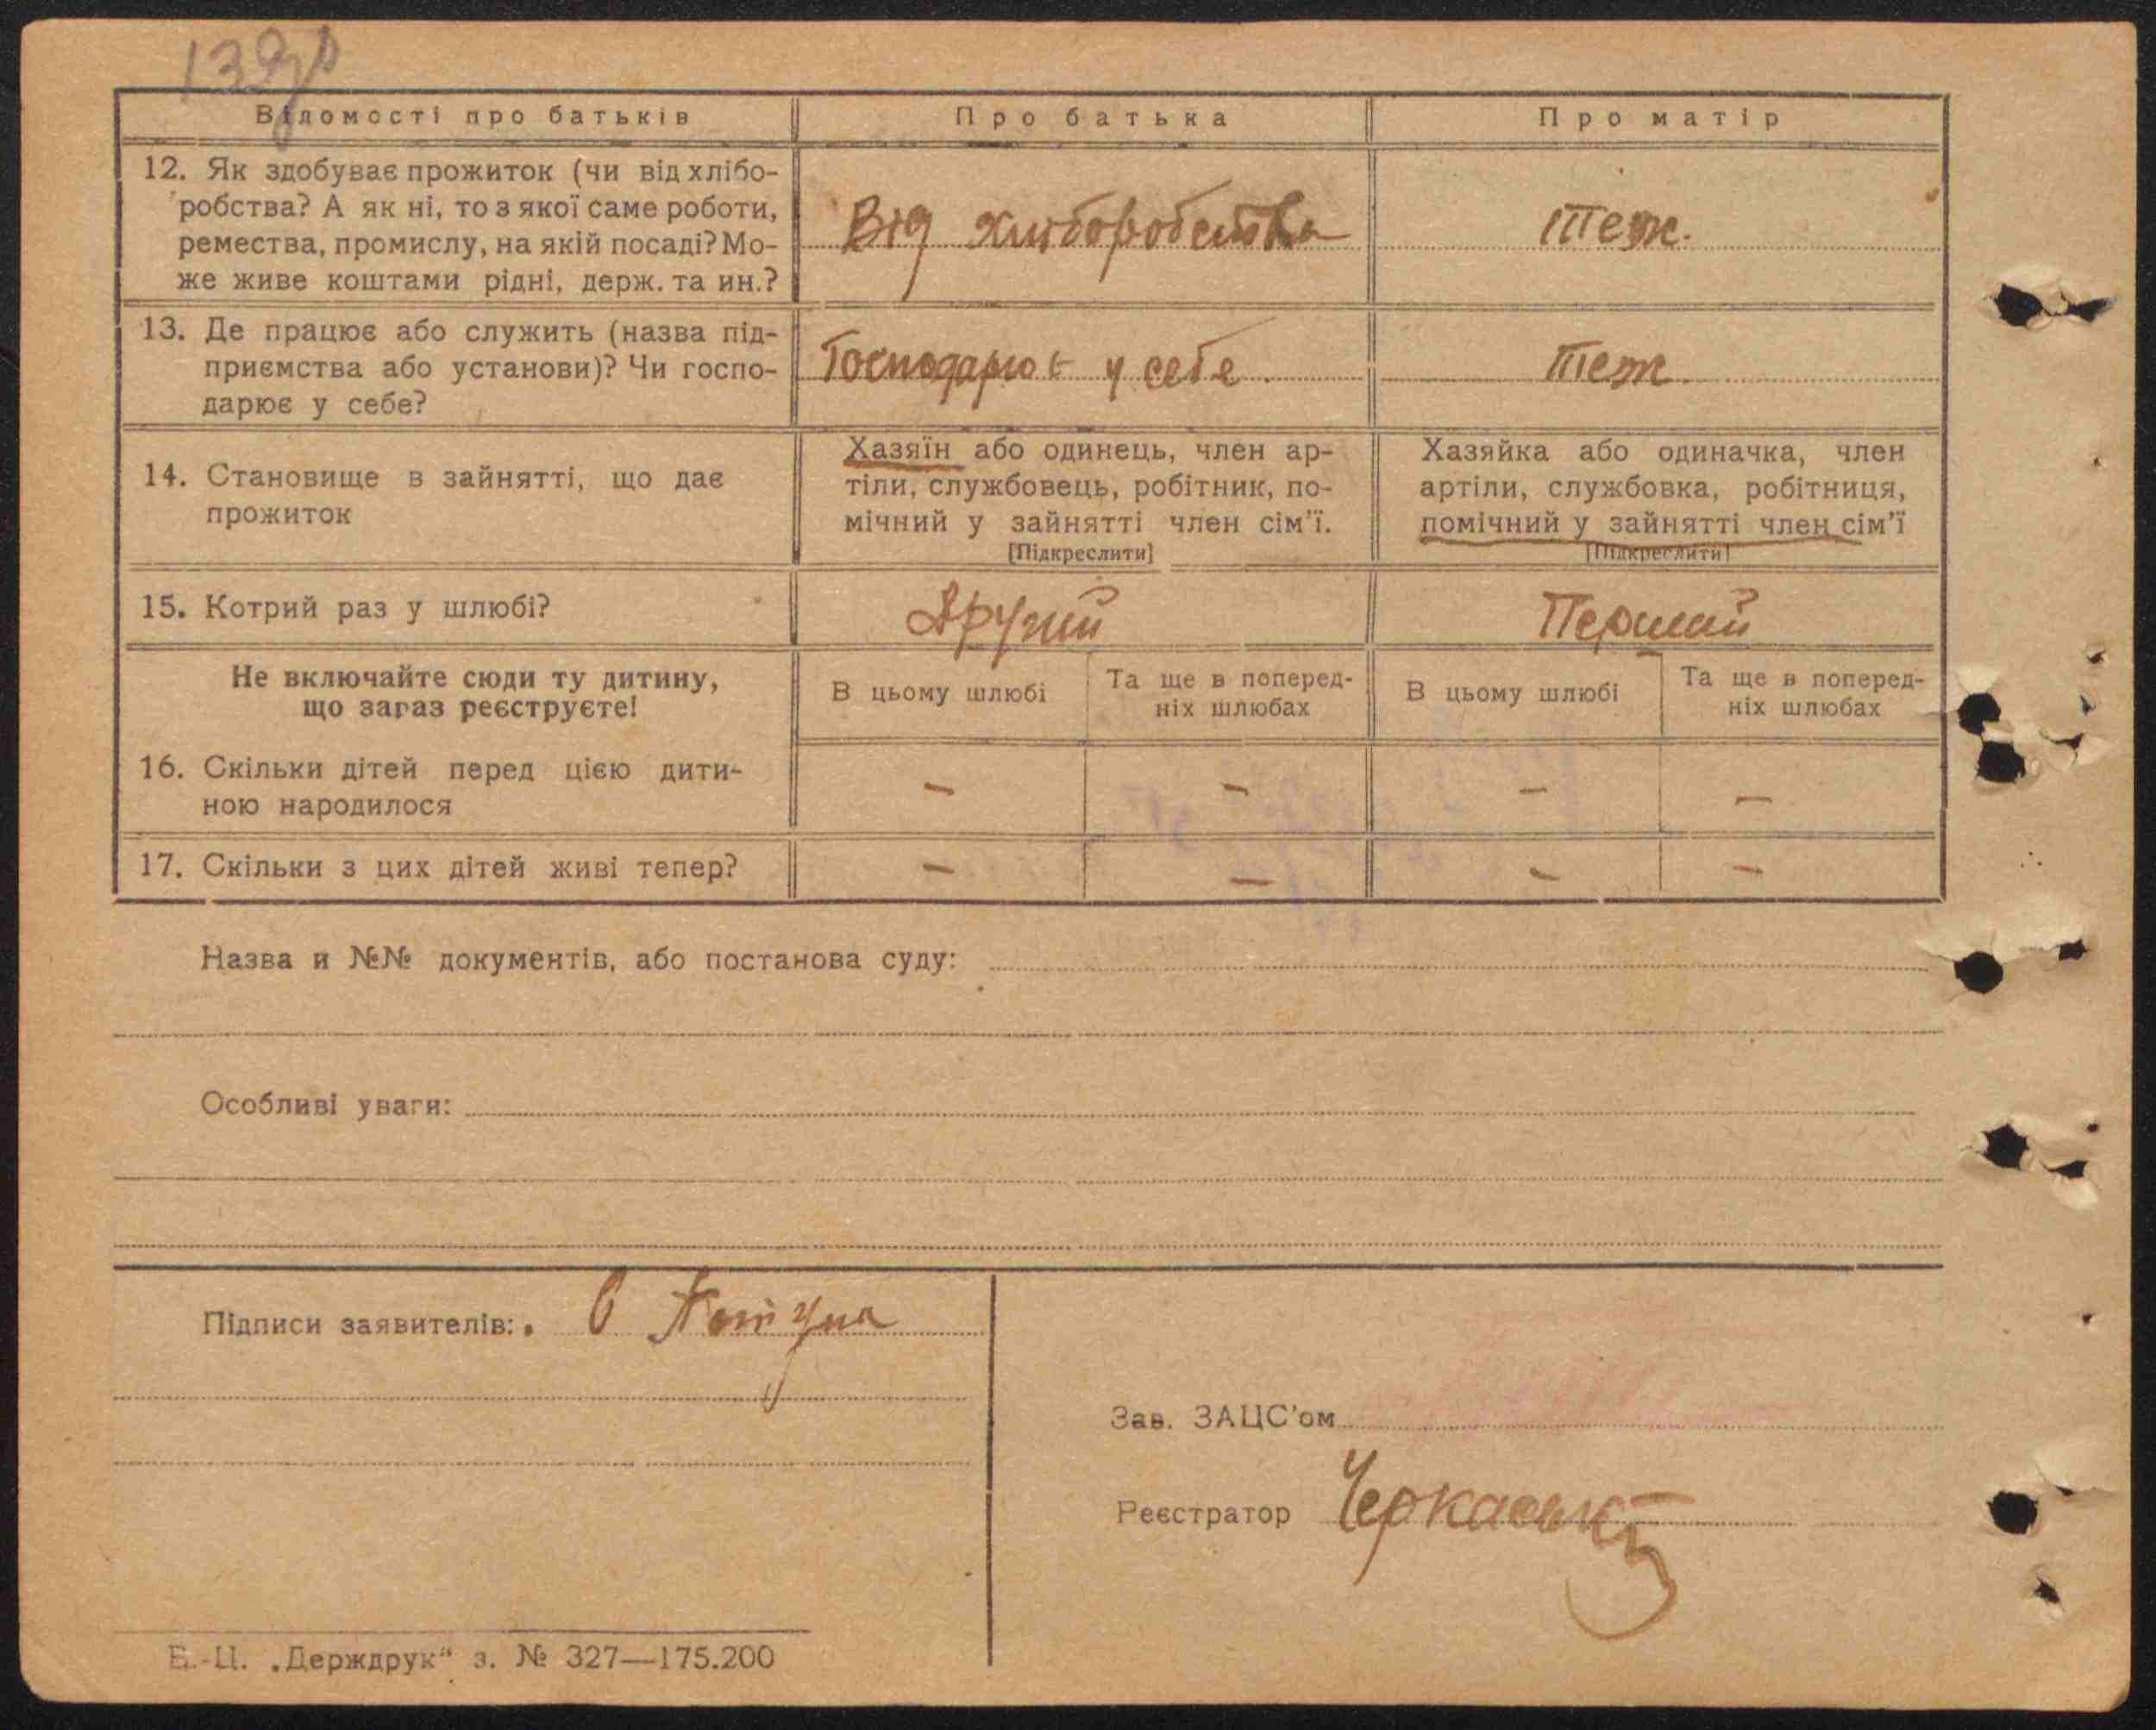 139
Відомості про батьків Про батька Про матір
12. Як здобуває прожиток (чи від хлібо-
робства? А як ні, то з якої саме роботи,
ремества, промислу, на якій посаді? Мо-
же живе коштами рідні, держ. та ин.?
Від хліборобства
Теж.
13. Де працює або служить (назва під-
приємства або установи)? Чи госпо-
дарює у себе?
Господарює у себе.
Теж.
14. Становище в зайнятті, що дає
прожиток
Хазяїн або одинець, член ар-
тіли, службовець, робітник, по-
мічний у зайнятті член сім'ї.
[Підкреслити]
Хазяйка або одиначка, член
артіли, службовка, робітниця,
помічний у зайнятті член сім'ї
[Підкреслити]
15. Котрий раз у шлюбі?
Другий
Перший
Не включайте сюди ту дитину,
що зараз реєструєте!
В цьому шлюбі
Та ще в поперед-
ніх шлюбах
В цьому шлюбі
Та ще в поперед-
ніх шлюбах
16. Скільки дітей перед цією дити-
ною народилося
– – – –
17. Скільки з цих дітей живі тепер?
– – – –
Назва и №№ документів, або постанова суду:
Особливі уваги:
Підписи заявителів:
Зав. ЗАЦС'ом
Реєстратор Черкаський
Б.-Ц. „Держдрук" з. № 327—175.200